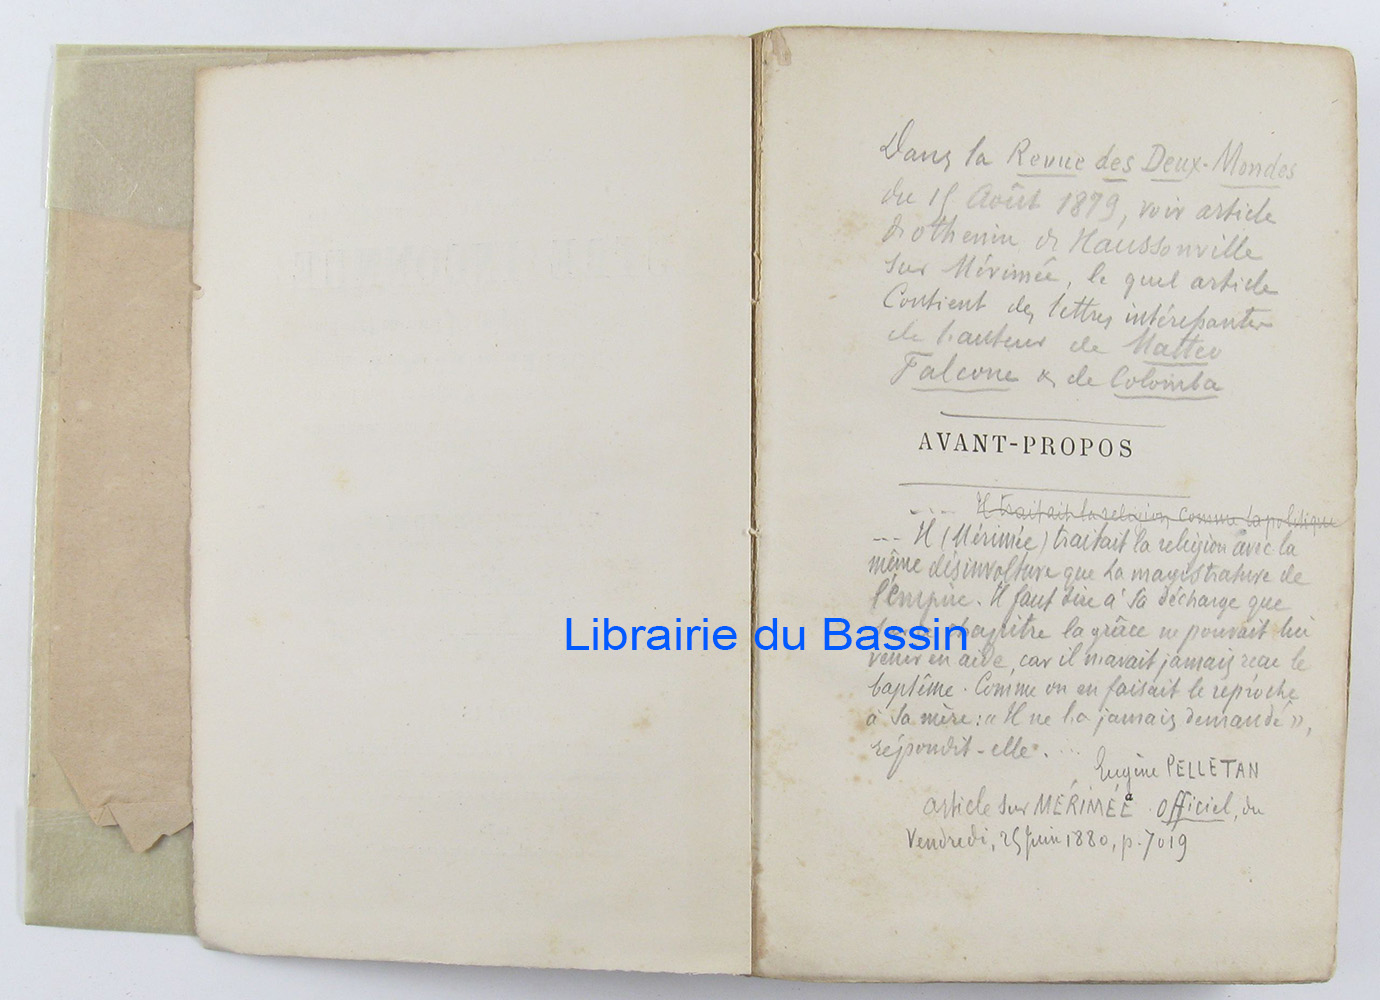 Dans la Revue des Deux-Mondes
du 15 Août 1879, voir article
d'othenin d'Haussonville
sur Mérimée, le quel article
Contient des lettres intéressantes
de l'auteur de Matteo
Falcone & de Colomba
AVANT-PROPOS
--- Il traitait la religion comme la politique
--- Il (Mérimée) traitait la religion avec la
même désinvolture que la magistrature de
l'Empire. Il faut dire à sa décharge que
chapitre la grâce ne pouvait lui
venir en aide, car il n'avait jamais reçu le
baptême. Comme on en faisait le reproche
à sa mère: « Il ne l'a jamais demandé »,
répondit-elle. ...
Eugène PELLETAN
article sur MÉRIMÉE a Officiel, du
Vendredi, 25 Juin 1880, p. 7019
Librairie du Bassin